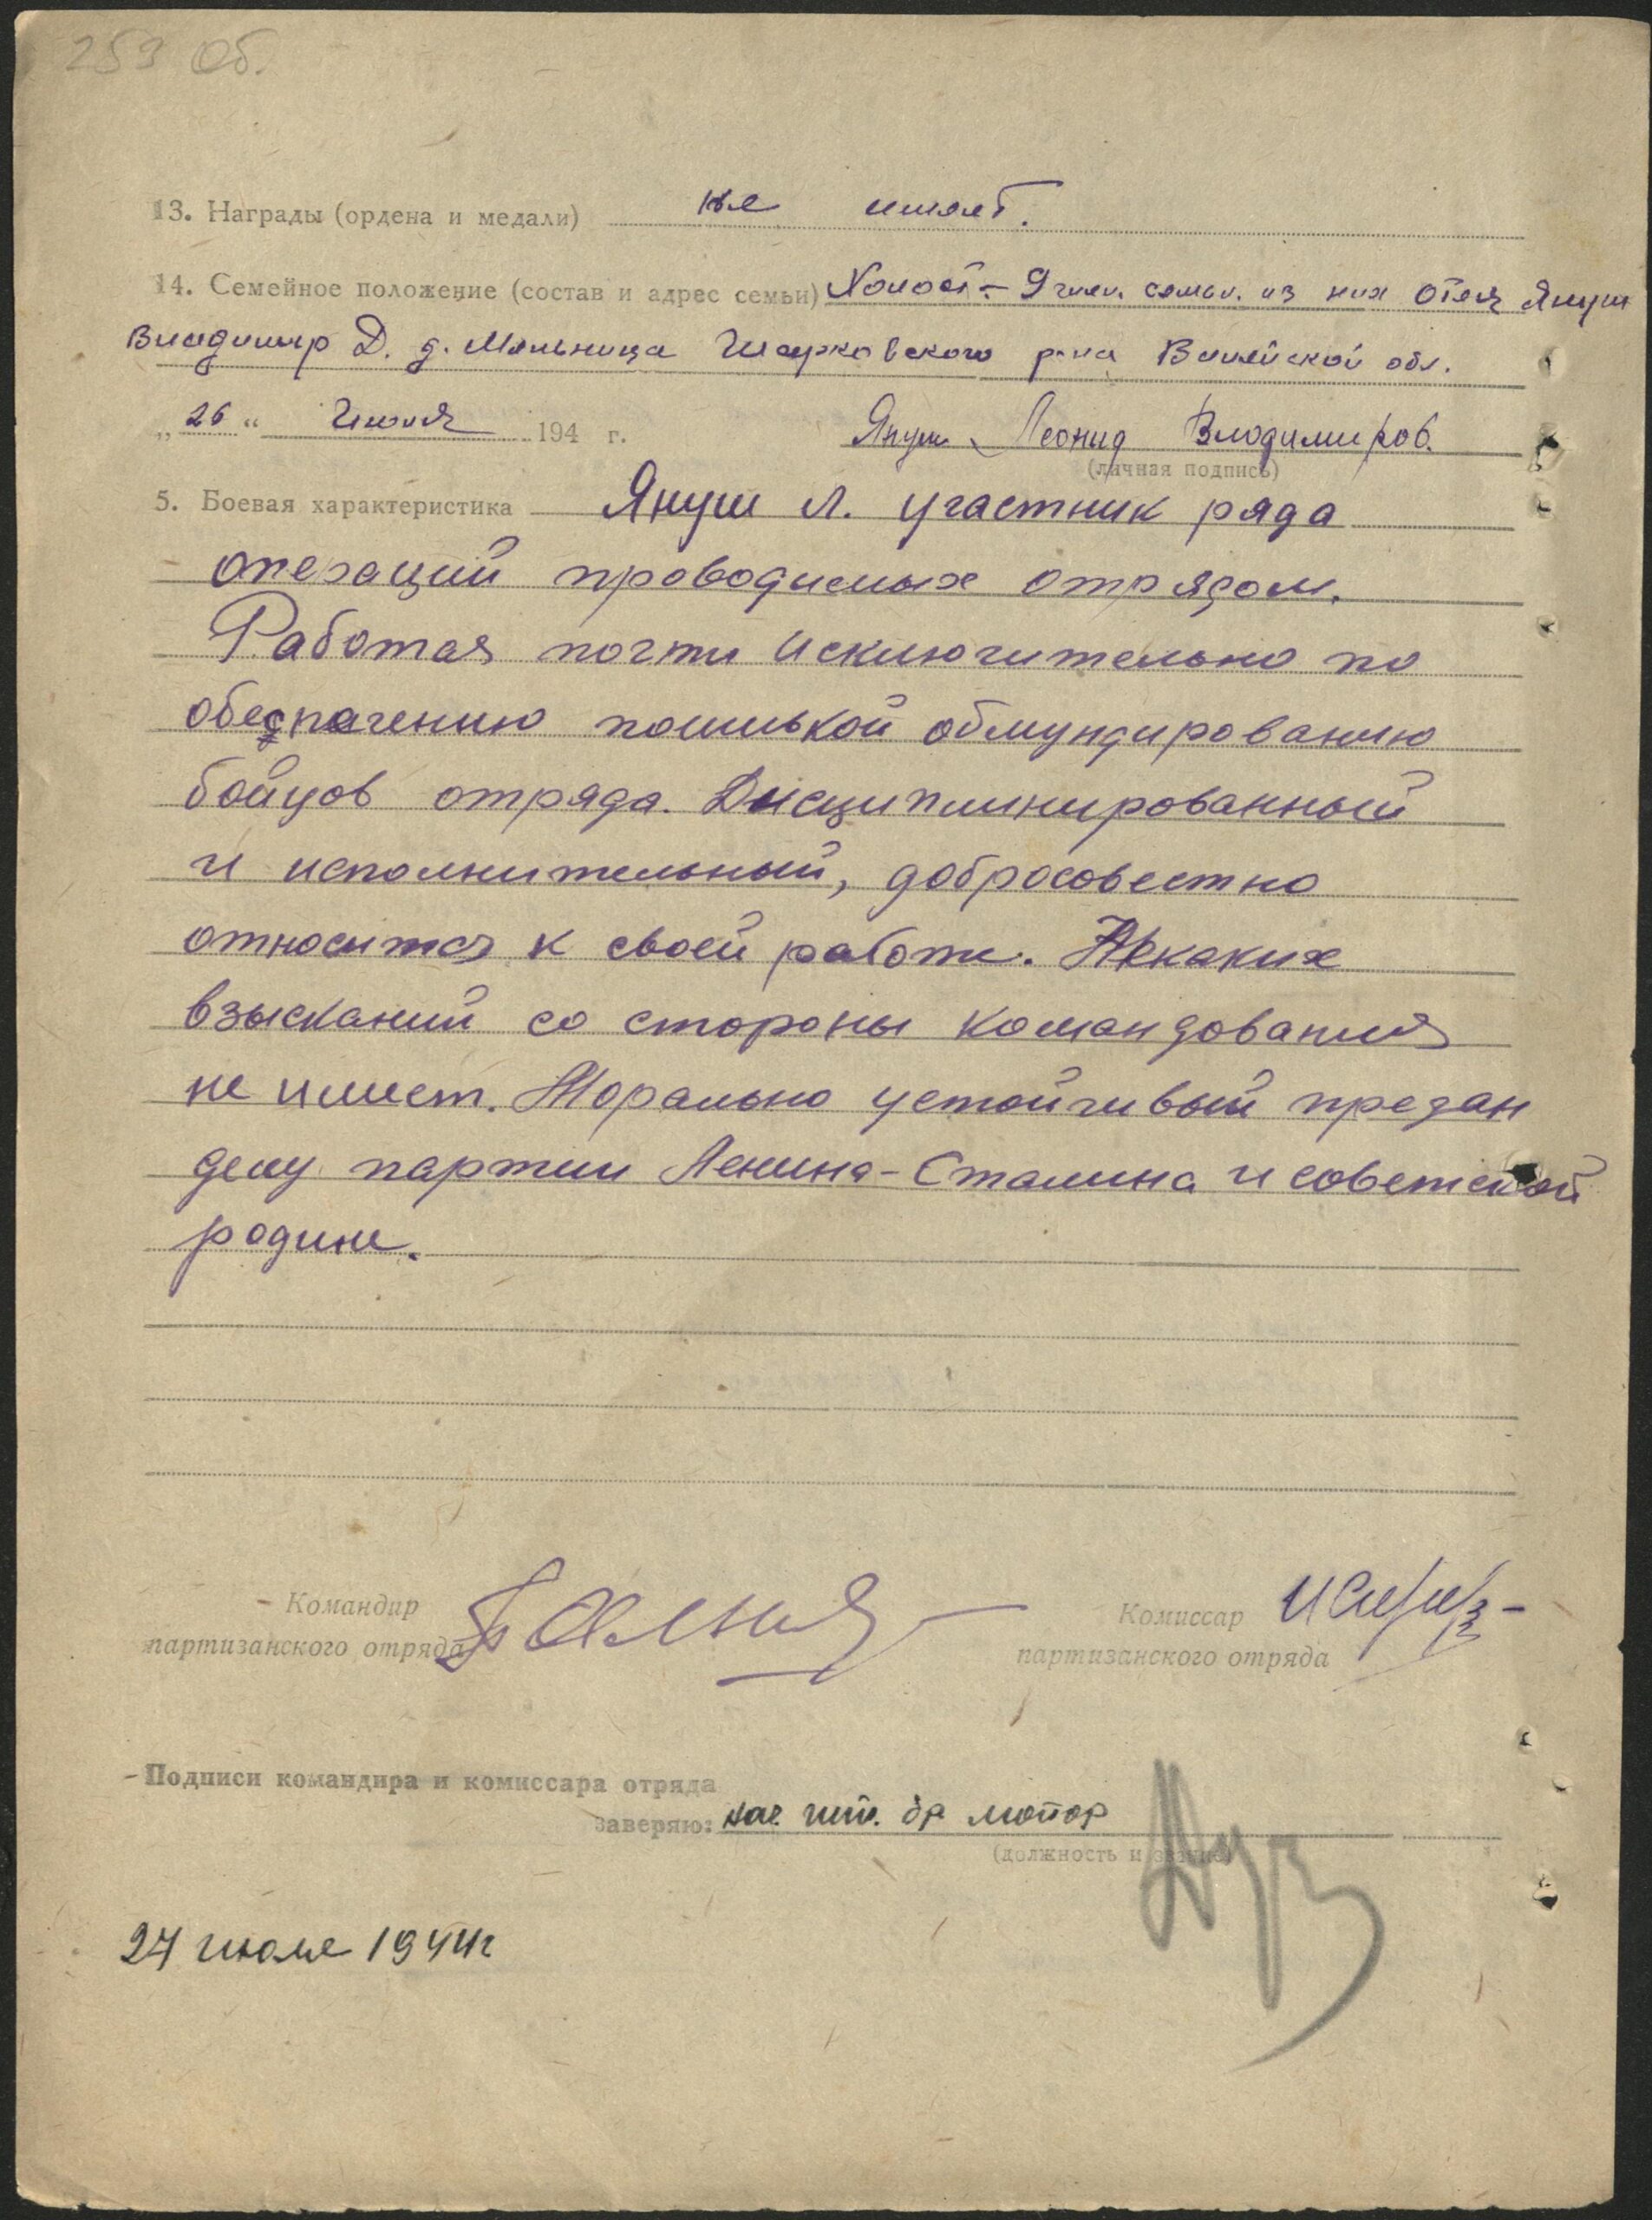 259 об.
13. Награды (ордена и медали) не имеет.
14. Семейное положение (состав и адрес семьи) Холост – 9 член. семьи. из них отец Януш
Владимир Д. д. Мельница Шарковского р-на Вилейской обл.
„26“ Июля 194 г. Януш Леонид Владимиров.
(личная подпись)
5. Боевая характеристика Януш Л. участник ряда
операций проводимых отрядом.
Работая почти исключительно по
обеспечению пошивкой обмундированию
бойцов отряда. Дисциплинированный
и исполнительный, добросовестно
относится к своей работе. Некаких
взысканий со стороны командования
не имеет. Морально устойчивый предан
делу партии Ленина-Сталина и советской
родине.
Командир
партизанского отряда
Комиссар
партизанского отряда
Подписи командира и комиссара отряда
заверяю: нач. шт. бр
(должность и звание)
27 июля 1944г